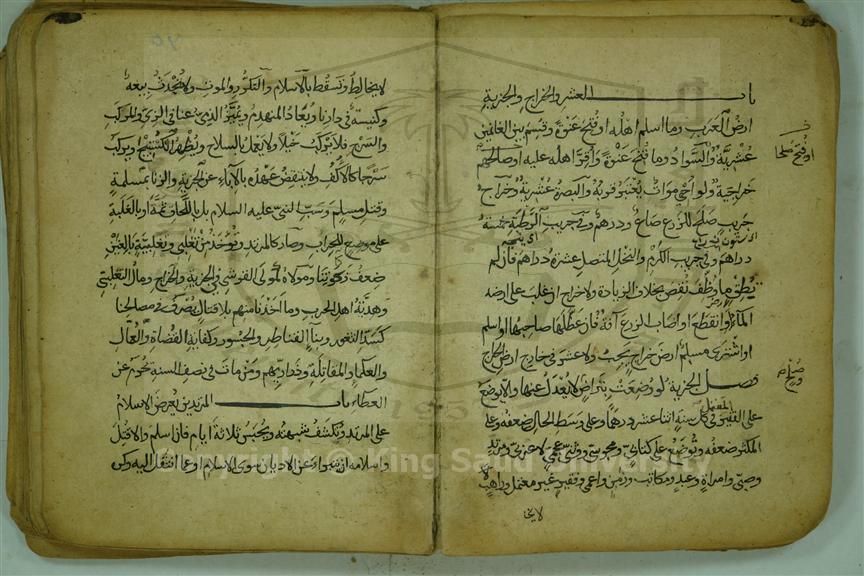 باب العشر والخراج والجزية
ارض العرب وما اسلم اهله او فتح عنوة وقسم بين الغانمين
عشرية والسواد وما فتح عنوة واقر اهله عليه او صالحهم
خراجية ولو احيى موات يعتبر قربه والبصرة عشرية وخراج
جريب صلح للزرع صاع ودرهم وفي جريب الرطبة خمسة
دراهم وفي جريب الكرم والنخل المتصل عشرة دراهم فان لم
يطق ما وظف نقص بخلاف الزيادة ولا خراج ان غلب على ارضه
الماء او انقطع او اصاب الزرع آفة فان عطلها صاحبها او اسلم
او اشترى مسلم ارض خراج يجب ولا عشر في خارج ارض الخراج
فصل الجزية لو وضعت بتراض لا يعدل عنها والا توضع
على الفقير المعتمل في كل سنة اثنا عشر درهما وعلى وسط الحال ضعفه وعلى
المكثر ضعفه وتوضع على كتابي ومجوسي ووثني عجمي لا عربي ومرتد
وصبي وامراة وعبد ومكاتب وزمن واعمى وفقير غير معتمل وراهب لا
او فتح صلحا
لا يخا
لا يخالط وتسقط بالاسلام والتكرر والموت ولا تحدث بيعة
وكنيسة في دارنا ويعاد المنهدم ويميز الذمي عنا في الزي والمركب
والسرج فلا يركب خيلا ولا يعمل السلاح ويظهر الكستيج ويركب
سرجا كالاكف ولا ينتقض عهده بالاباء عن الجزية والزنا بمسلمة
وقتل مسلم وسب النبي عليه السلام بل باللحاق ثمة او بالغلبة
على موضع للحراب وصار كالمرتد ويؤخذ من تغلبي وتغلبية بالغين
ضعف زكوتنا ومولاه كمولى القرشي في الجزية والخراج ومال التغلبي
وهدية اهل الحرب وما اخذنا منهم بلا قتال يصرف في مصالحنا
كسد الثغور وبناء القناطر والجسور وكفاية القضاة والعمال
والعلماء والمقاتلة وذراريهم ومن مات في نصف السنة حرم عن
العطاء باب المرتدين يعرض الاسلام
على المرتد وتكشف شبهته ويحبس ثلاثة ايام فان اسلم والا قتل
واسلامه ان يتبرأ عن الاديان سوى الاسلام او عما انتقل اليه وكره
Copyright © King Saud University